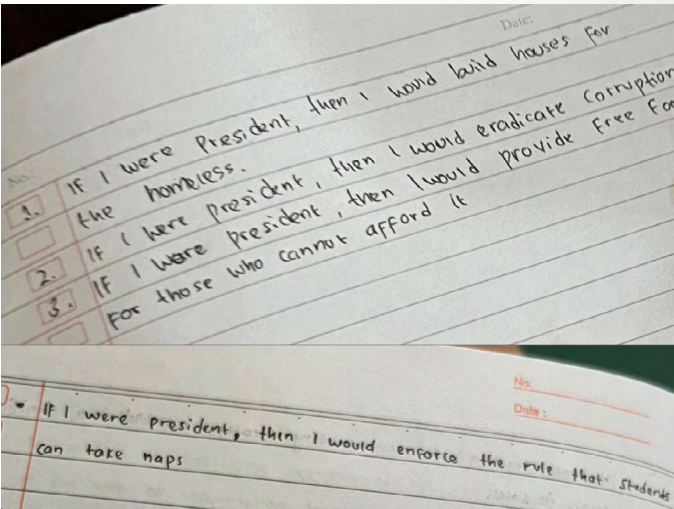 Date:
No:
1. If I were President, then I would build houses for
the homeless.
2. If I were president, then I would eradicate corruption
3. If I were president, then I would provide free
for those who cannot afford it
No.
Date :
• If I were president, then I would enforce the rule that students
can take naps